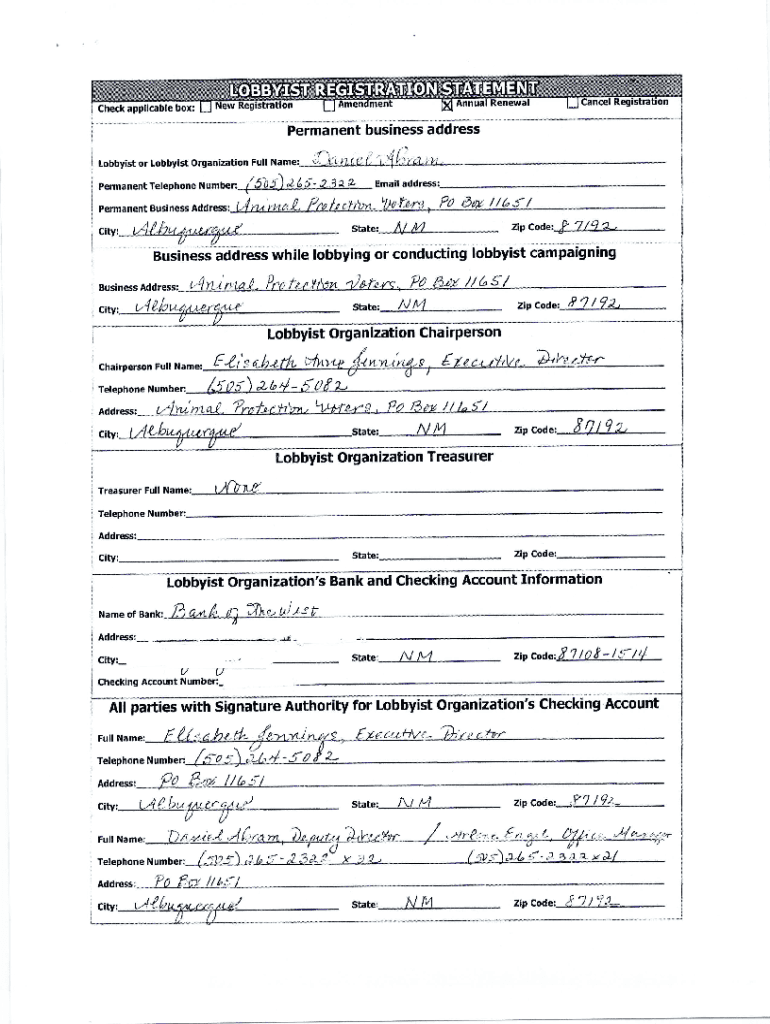 LOBBYIST REGISTRATION STATEMENT
Check applicable box: New Registration Amendment X Annual Renewal Cancel Registration
Permanent business address
Lobbyist or Lobbyist Organization Full Name: Daniel Abram
Permanent Telephone Number: (505) 265-2322 Email address:
Permanent Business Address: Animal Protection Voters, PO Box 11651
City: Albuquerque State: NM Zip Code: 87192
Business address while lobbying or conducting lobbyist campaigning
Business Address: Animal Protection Voters, PO Box 11651
City: Albuquerque State: NM Zip Code: 87192
Lobbyist Organization Chairperson
Chairperson Full Name: Elisabeth Anne Jennings, Executive Director
Telephone Number: (505) 264-5082
Address: Animal Protection Voters, PO Box 11651
City: Albuquerque State: NM Zip Code: 87192
Lobbyist Organization Treasurer
Treasurer Full Name: None
Telephone Number:
Address:
City: State: Zip Code:
Lobbyist Organization's Bank and Checking Account Information
Name of Bank: Bank of The West
Address:
City: State: NM Zip Code: 87108-1514
Checking Account Number:
All parties with Signature Authority for Lobbyist Organization's Checking Account
Full Name: Elisabeth Jennings, Executive Director
Telephone Number: (505) 264-5082
Address: PO Box 11651
City: Albuquerque State: NM Zip Code: 87192
Full Name: Daniel Abram, Deputy Director / Arlene Engel, Office Manager
Telephone Number: (505) 265-2322 x 32 (505) 265-2322 x 21
Address: PO Box 11651
City: Albuquerque State: NM Zip Code: 87192